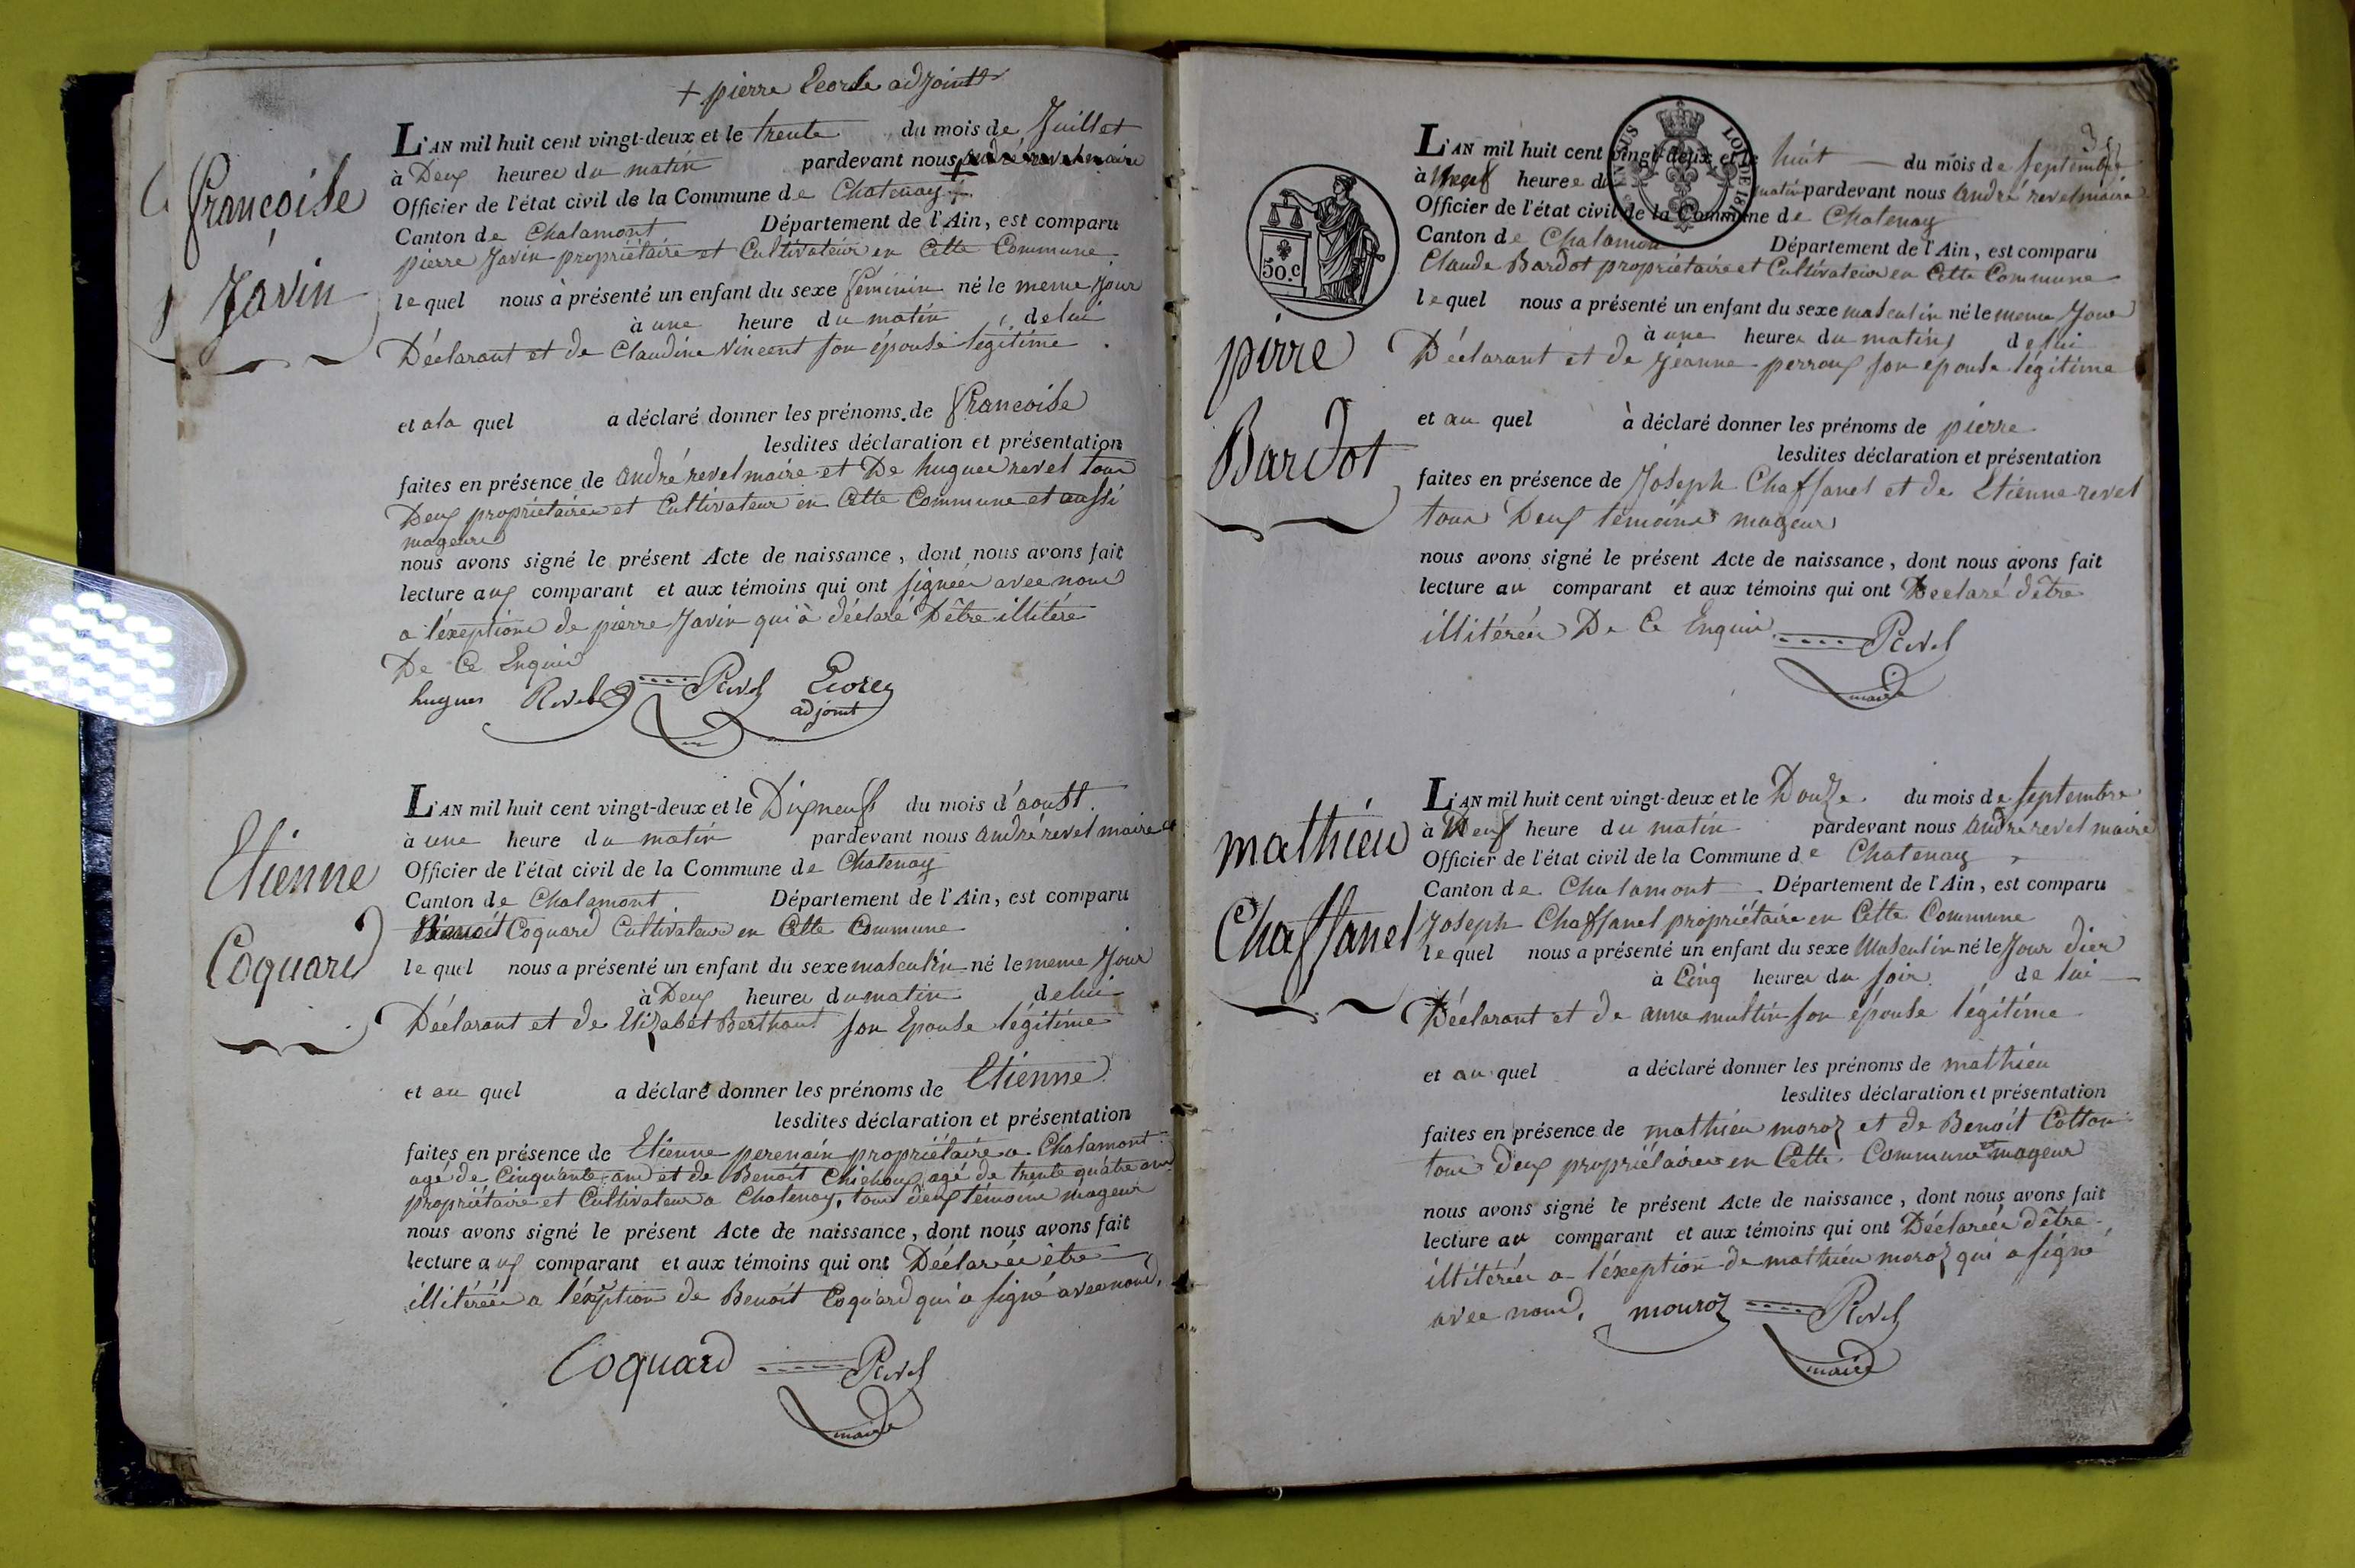 + pierre Ecorle adjoint
L'AN mil huit cent vingt-deux et le trente du mois de Juillet
à Deux heures du matin pardevant nous
Officier de l'état civil de la Commune de Chatenay +
Canton de Chalamont Département de l'Ain, est comparu
pierre Javin propriétaire et Cultivateur en Cette Commune.
le quel nous à présenté un enfant du sexe féminin né le meme Jour
à une heure du matin, de lui
Déclarant et de Claudine Vincent son épouse légitime
Francoise
Javin
et ala quel a déclaré donner les prénoms de Francoise
lesdites déclaration et présentation
faites en présence de andré revel maire et De hugues revel tous
Deux propriétaires et Cultivateur en Cette Commune et aussi
mageurs
nous avons signé le présent Acte de naissance, dont nous avons fait
lecture aux comparant et aux témoins qui ont signées avec nous
a l'éxeptions de pierre Javin qui à déclaré D'être illitére
De Ce Enquis
hugues Revel Revel
adjoint
L'AN mil huit cent vingt-deux et le Dixneuf du mois d'aoust.
à une heure du matin pardevant nous andré revel maire et
Officier de l'état civil de la Commune de Chatenay
Canton de Chalamont Département de l'Ain, est comparu
Benoit Coquard Cultivateur en Cette Commune
le quel nous a présenté un enfant du sexe masculin né le meme Jour
à Deux heures du matin de lui
Déclarant et de Elizabet Berthout son Epouse légitime
Etienne
Coquard
et au quel a déclaré donner les prénoms de Etienne
lesdites déclaration et présentation
faites en présence de Etienne perenain propriétaire a Chalamont
agé de Cinquante ans et de Benoit Chichoux agé de trente quatre ans
propriétaire et Cultivateur a Chatenay, tous deux témoins mageur
nous avons signé le présent Acte de naissance, dont nous avons fait
lecture aux comparant et aux témoins qui ont Déclarées être
illitérées a l'éxeption de Benoit Coquard qui a signé avec nous,
Coquard Revel
maire
L'AN mil huit cent vingt-deux et le huit du mois de Septembre
à Neuf heures du matin pardevant nous andré revel maire
Officier de l'état civil de la Commune de Chatenay
Canton de Chalamont Département de l'Ain, est comparu
Claude Bardot propriétaire et Cultivateur en Cette Commune
50.c
le quel nous a présenté un enfant du sexe masculin né le meme Jour
à une heures du matin, de lui
Déclarant et de Jeanne perroux son épouse légitime
pirre
Bardot
et au quel à déclaré donner les prénoms de pierre
lesdites déclaration et présentation
faites en présence de Joseph Chaffanel et de Etienne revel
tous Deux témoins mageur
nous avons signé le présent Acte de naissance, dont nous avons fait
lecture au comparant et aux témoins qui ont Déclaré d'être
illitérées De Ce Enquis Revel
maire
L'AN mil huit cent vingt-deux et le Douze du mois de Septembre
à Neuf heure du matin pardevant nous andré revel maire
Officier de l'état civil de la Commune de Chatenay
Canton de Chalamont Département de l'Ain, est comparu
Joseph Chaffanel propriétaire en Cette Commune
le quel nous a présenté un enfant du sexe Masculin né le Jour dier
à Cinq heures du soir. de lui
Déclarant et de anne multin son épouse légitime
mathieu
Chaffanel
et au quel a déclaré donner les prénoms de mathieu
lesdites déclaration et présentation
faites en présence de mathieu moroz et de Benoit Cotton
tous deux propriétaires en Cette Commune et mageur
nous avons signé le présent Acte de naissance, dont nous avons fait
lecture au comparant et aux témoins qui ont Déclarées d'être
illitérées a l'éxeption de mathieu moroz qui a signé
avec nous, mouroz Revel
maire